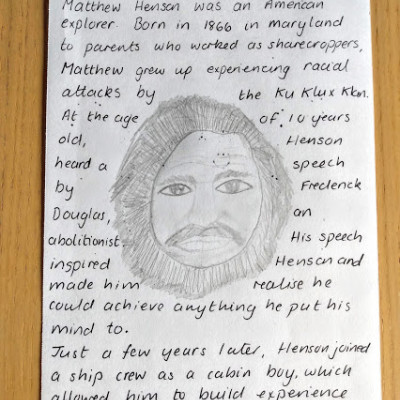 Matthew Henson was an American
explorer. Born in 1866 in maryland
to parents who worked as sharecroppers,
Matthew grew up experiencing racial
attacks by the Ku Klux Klan.
At the age of 10 years
old, Henson
heard a speech
by Frederick
Douglas, an
abolitionist. His speech
inspired Henson and
made him realise he
could achieve anything he put his
mind to.
Just a few years later, Henson joined
a ship crew as a cabin boy, which
allowed him to build experience